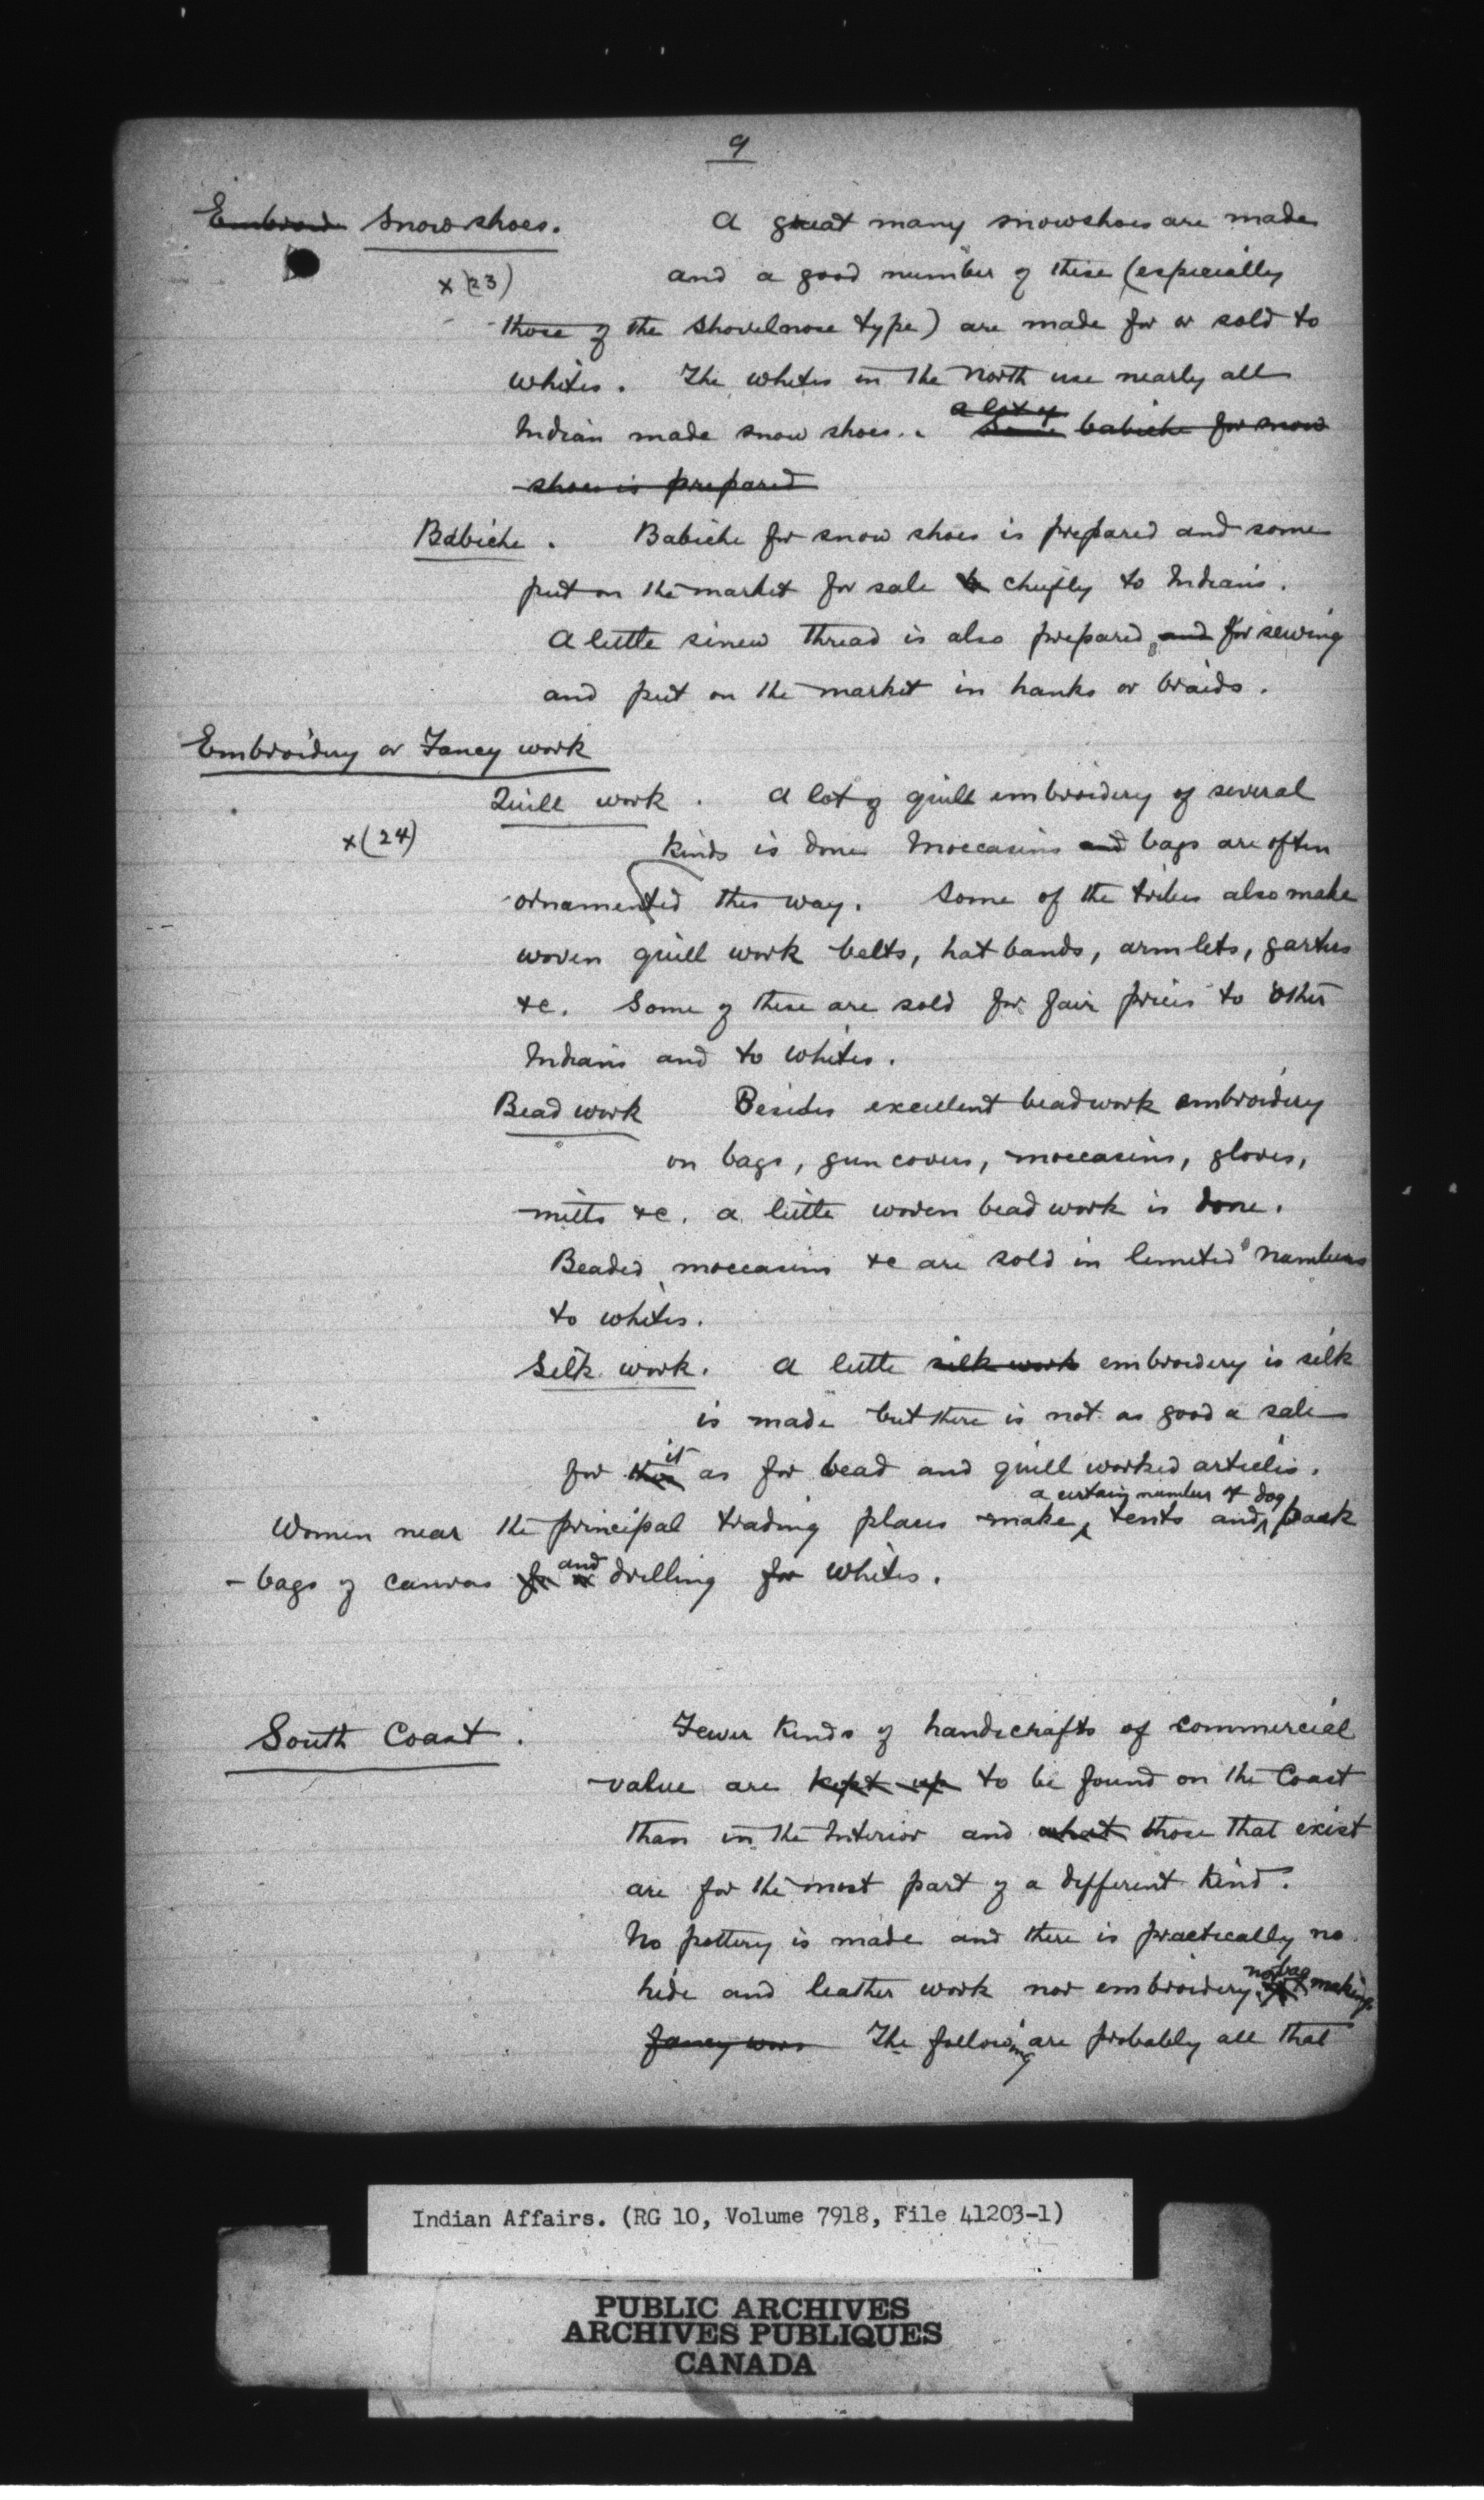 9
Embroid Snowshoes. A great many snowshoes are made
x (23) and a good number of these (especially
those of the shovelnose type) are made for or sold to
whites. The whites in the North use nearly all
Indian made snow shoes. a lot of Some babiche for snow
shoes is prepared
Babiche. Babiche for snow shoes is prepared and some
put on the market for sale to chiefly to Indians.
A little sinew thread is also prepared, and for sewing
and put on the market in hanks or braids.
Embroidery or Fancy work
Quill work. A lot of quill embroidery of several
x (24) kinds is done Moccasins and bags are often
ornamented this way. Some of the tribes also make
woven quill work belts, hat bands, armlets, garters
&c. Some of these are sold for fair prices to other
Indians and to whites.
Bead work Besides excellent beadwork embroidery
on bags, gun covers, moccasins, gloves,
mitts &c. a little woven bead work is done.
Beaded moccasins &c are sold in limited numbers
to whites.
Silk work. A little silk work embroidery is silk
is made but there is not as good a sale
for this it as for bead and quill worked articles.
Women near the principal trading places make a certain number of tents and dog pack
- bags of canvas for or and drilling for whites.
South Coast. Fewer kinds of handicrafts of commercial
value are kept up to be found on the Coast
than in the Interior and what those that exist
are for the most part of a different kind.
No pottery is made and there is practically no
hide and leather work nor embroidery nor bag making
fancy work The following are probably all that
Indian Affairs. (RG 10, Volume 7918, File 41203-1)
PUBLIC ARCHIVES
ARCHIVES PUBLIQUES
CANADA